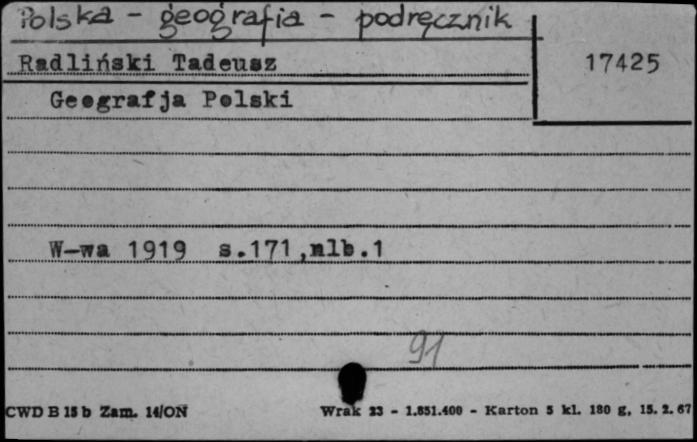 Polska - geografia - podręcznik
Radliński Tadeusz
17425
Geografja Polski
W-wa 1919 s.171,nlb.1
91
CWD B 15 b Zam. 14/ON
Wrak 23 - 1.851.400 - Karton 5 kl. 180 g, 15. 2. 67